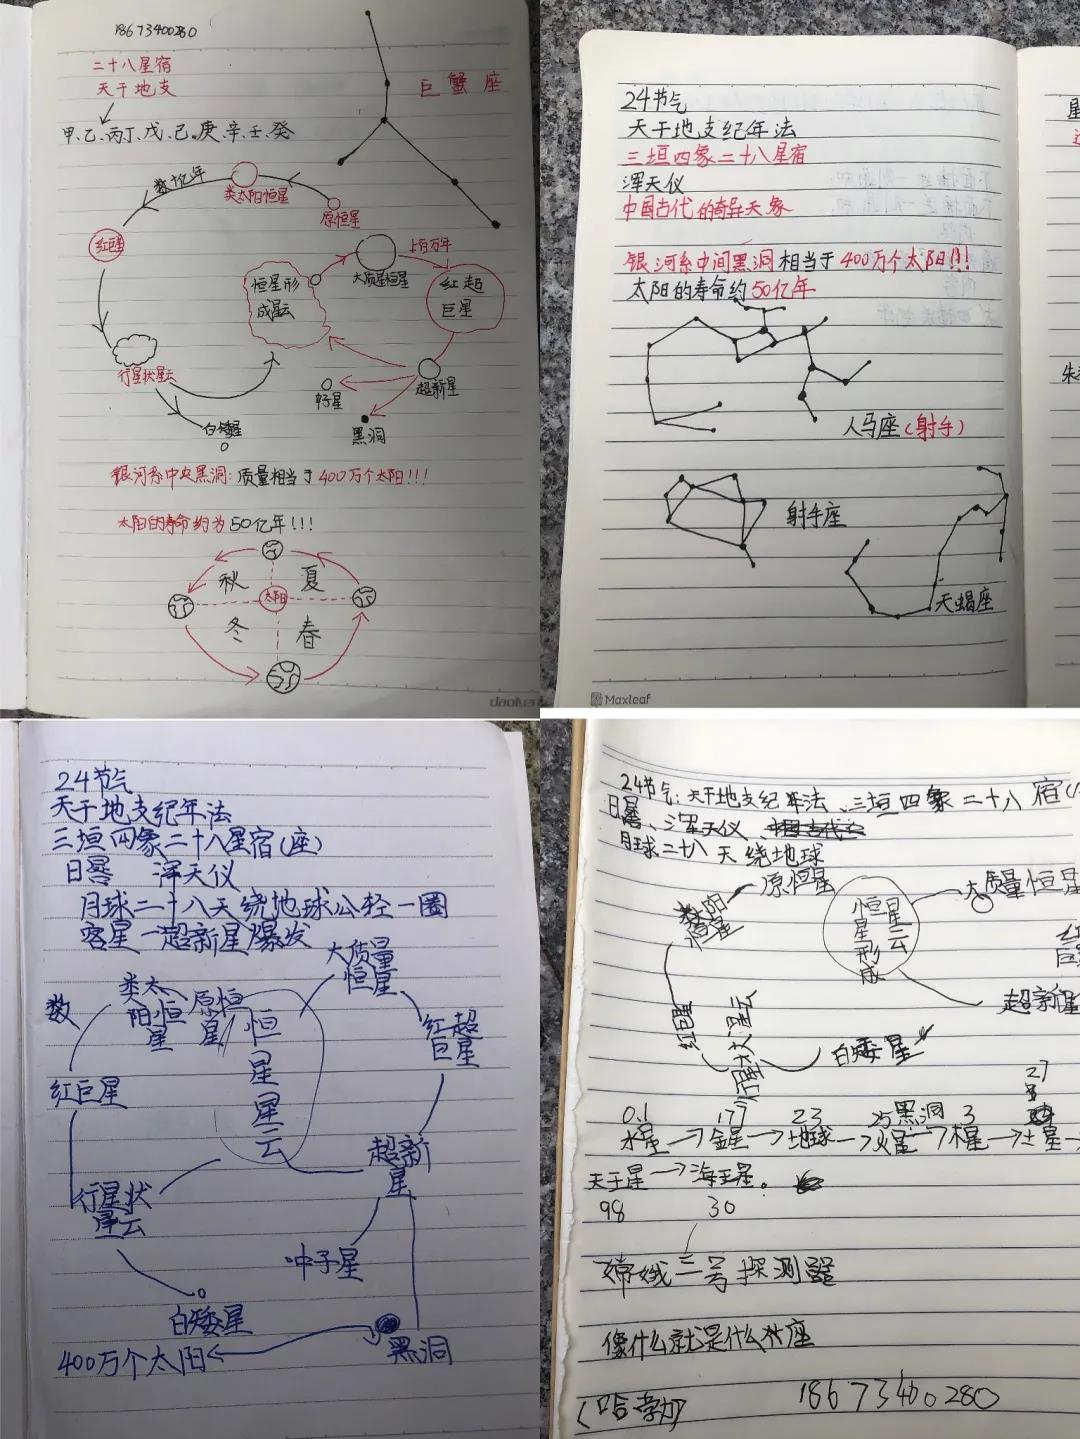 18673400280
二十八星宿
天干地支
甲、乙、丙丁、戊、己、庚、辛、壬、癸
巨蟹座
数十亿年
类太阳恒星
原恒星
红巨星
恒星形
成星云
大质星恒星
上百万年
红超
巨星
行星状星云
超新星
白矮星
黑洞
银河系中央黑洞:质量相当于400万个太阳!!!
太阳的寿命约为50亿年!!!
秋
夏
太阳
冬
春
24节气
天干地支纪年法
三垣四象二十八星宿
浑天仪
中国古代的奇异天象
银河系中间黑洞相当于400万个太阳!!!
太阳的寿命约50亿年
人马座(射手)
射手座
天蝎座
Maxleaf
24节气
天干地支纪年法
三垣四象二十八星宿(座)
日晷 浑天仪
月球二十八天绕地球公轻一圈
客星一超新星爆发
大质量
恒星
类太
阳恒
星
原恒
星
数
恒
星
星
云
红超
巨星
红巨星
超新
星
行星状
星云
冲子星
白矮星
400万个太阳
黑洞
24节气:天干地支纪年法、三垣四象二十八宿
日晷、浑天仪
月球二十八天绕地球
原恒星
大质量恒星
恒星
星云
形
成
红
巨星
超新星
红巨星
行星状星云
白矮星
27
0.1 177 23 25 黑洞 3
水星→金星→地球→火星→木星→土星
天王星→海王星。
98 30
嫦娥三号探测器
像什么就是什么座
18673400280